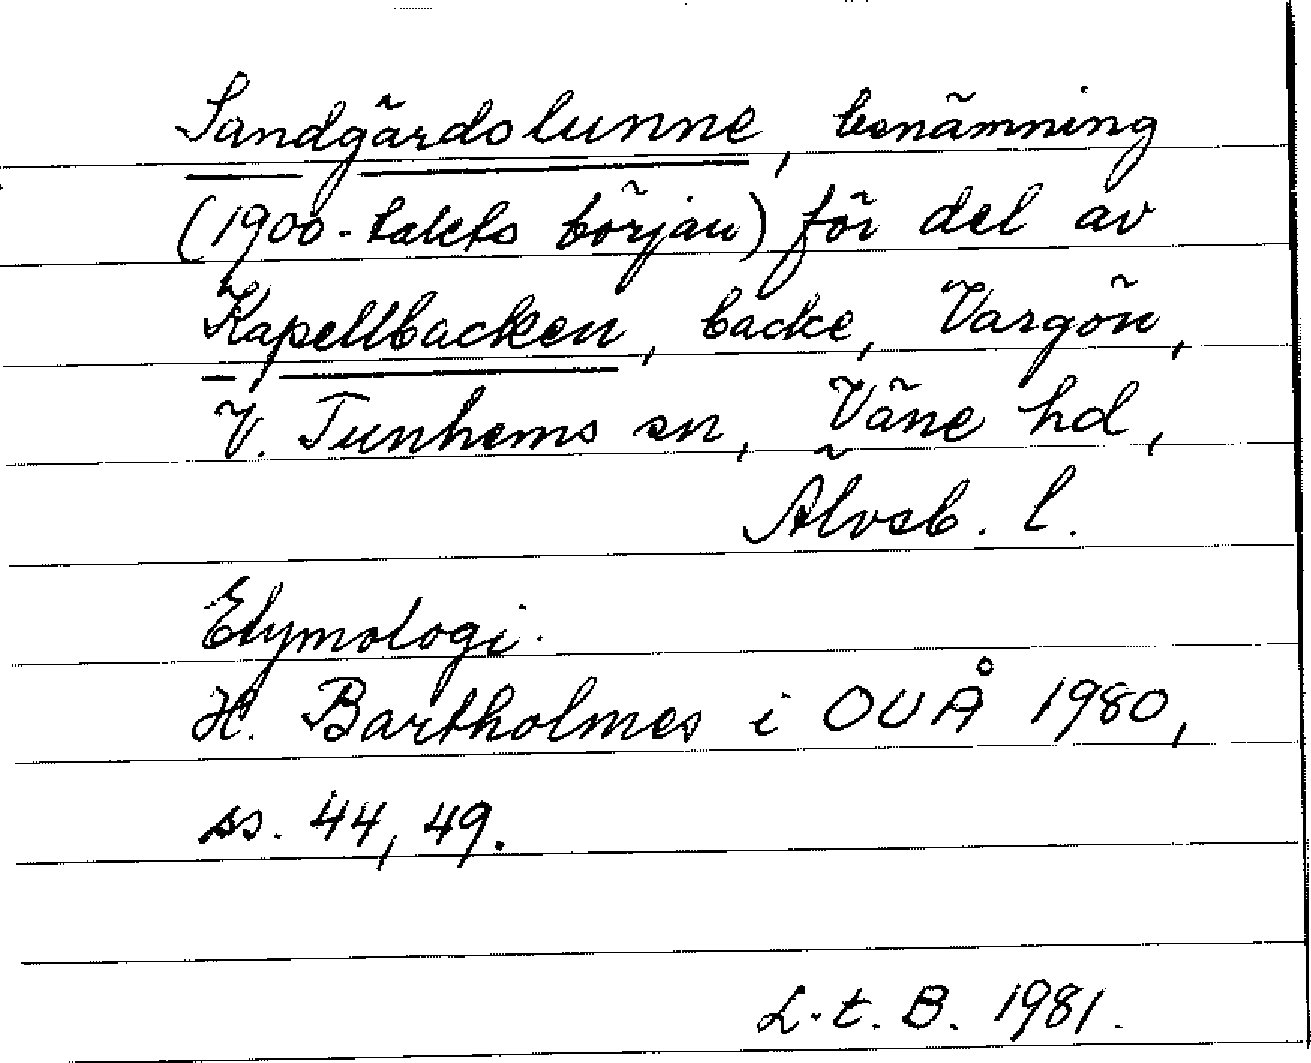 Sandgärdslunne, benämning
(1900-talets början) för del av
Kapellbacken, backe, Vargön,
V. Tunhems sn, Väne hd,
Älvsb. l.
Etymologi.
H. Bartholmes i OUÅ 1980,
ss. 44, 49.
L.t.B. 1981.